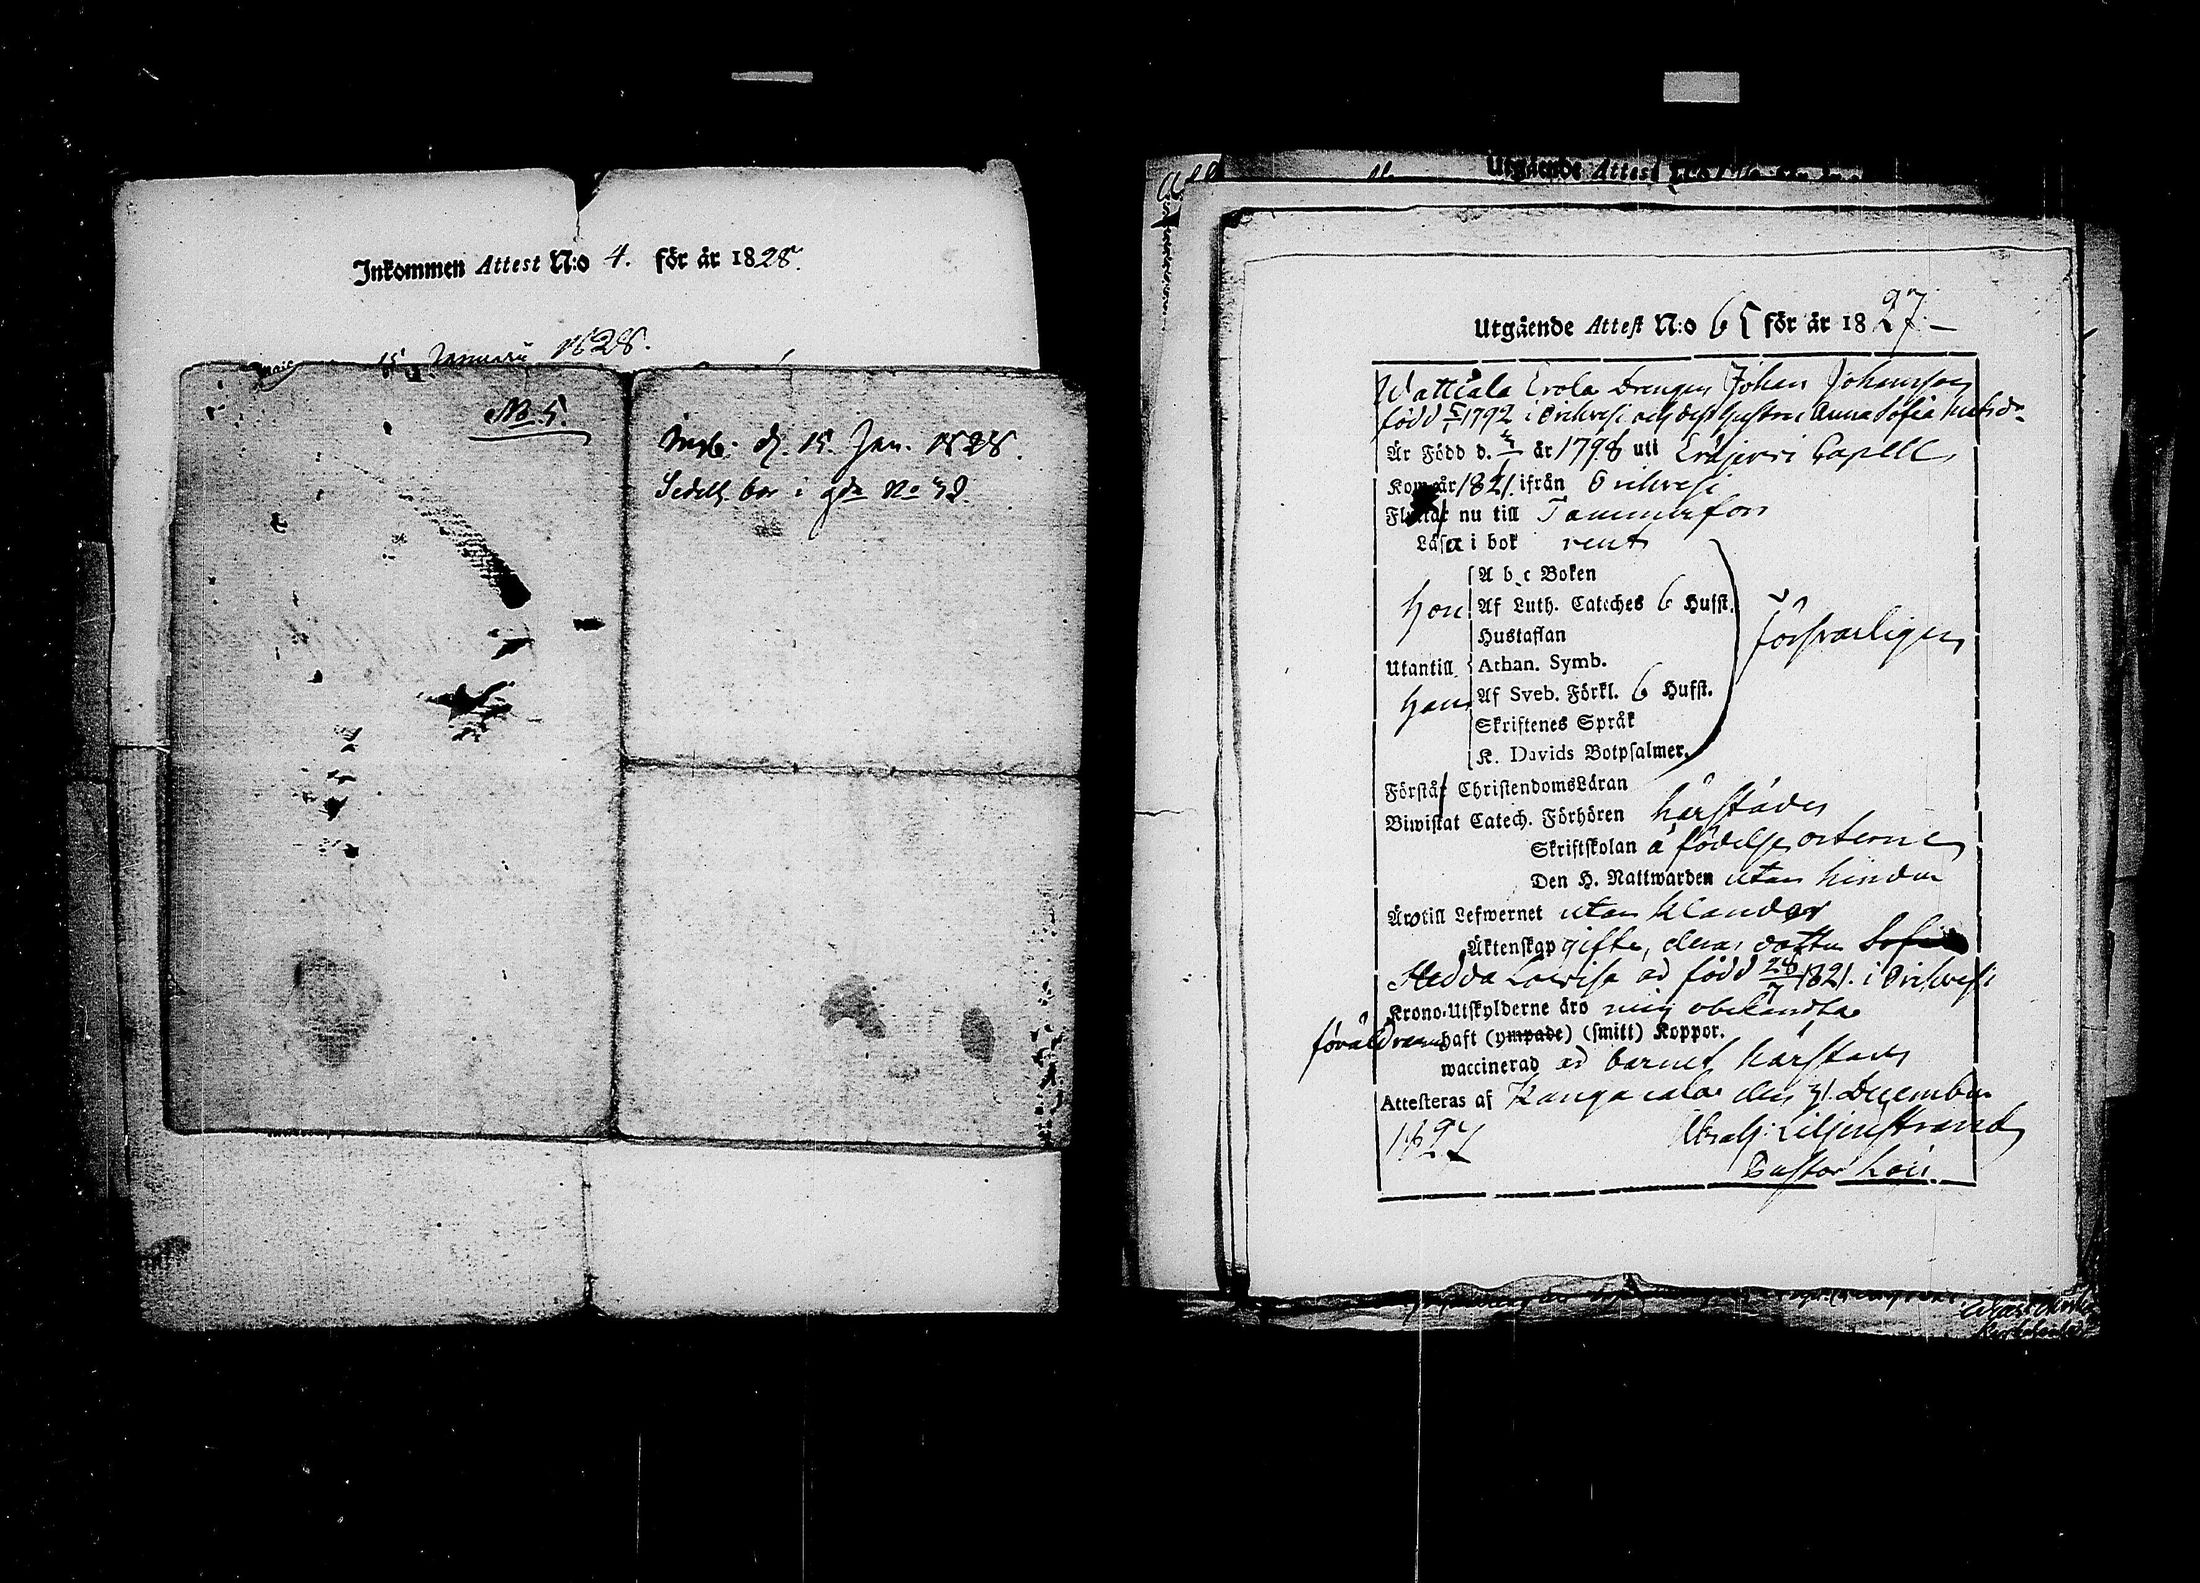 Inkommen Attest N:o 4. för år 1828.
15 Januarii 1828.
No 5.
d. 15. Jan. 1828.
Sedeln bor i gdn No 32.
Utgående Attest
Utgående Attest N:o 65 för år 1827.
Wattiala Erola Drengen Johan Johansson
född 1792 i Orihvesi och dess hustru Anna Sofia Matsdr
Är Född d. år 1798 uti Eräjervi Capell
Kom år 1821. ifrån Orihvesi
Flyttar nu till Tammerfors
Läsa i bok rent
A b c Boken
hon Af Luth. Cateches 6 Hufst.
Hustaflan
Utantill Athan. Symb.
han Af Sveb. Förkl. 6 Hufst.
försvarligen
Skriftenes Språk
K. Davids Botpsalmer.
Förstår ChristendomsLäran
Biwistat Catech. Förhören härstädes
Skriftskolan å födelse orterne
Den H. Nattwarden utan hinder
Äro till Lefwernet utan klander
Äktenskap gifte, deras dotter Sofia
Hedda Lovisa är född 28/7 1821. i Orihvesi
Krono-Utskylderne äro mig obekandta
föräldrarne haft (ympade) (smitt) Koppor.
waccinerad är barnet härstädes
Attesteras af Kangasala den 31. December
1827 Liljenstrand
Pastor Loci.